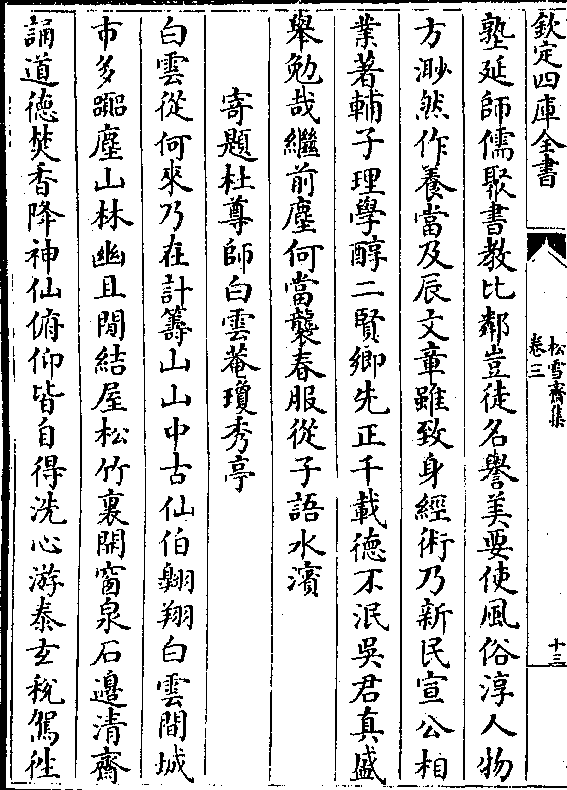 欽定四庫全書
松雪齋集
卷三
十三
塾延師儒聚書教比鄰豈徒名譽美要使風俗淳人物
方渺然作養當及辰文章雖致身經術乃新民宣公相
業著輔子理學醇二賢鄉先正千載德不泯吳君真盛
舉勉哉繼前塵何當襲春服從子語水濱
寄題杜尊師白雲菴瓊秀亭
白雲從何來乃在計籌山山中古仙伯翺翔白雲間城
市多嚻塵山林幽且閒結屋松竹裏開窗泉石邊清齋
誦道德焚香降神仙俯仰皆自得洗心游泰玄稅駕徃